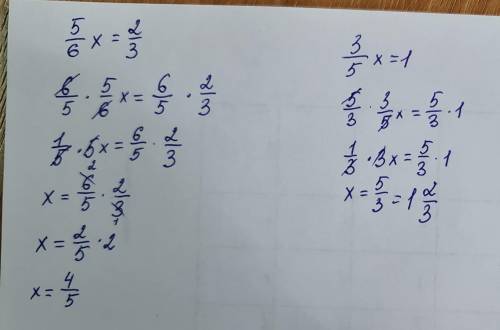 5/6 x = 2/3
6/5 · 5/6 x = 6/5 · 2/3
1/5 · 5x = 6/5 · 2/3
x = 6/5 · 2/3
2
1
x = 2/5 · 2
x = 4/5
3/5 x = 1
5/3 · 3/5 x = 5/3 · 1
1/3 · 3x = 5/3 · 1
x = 5/3 = 1 2/3